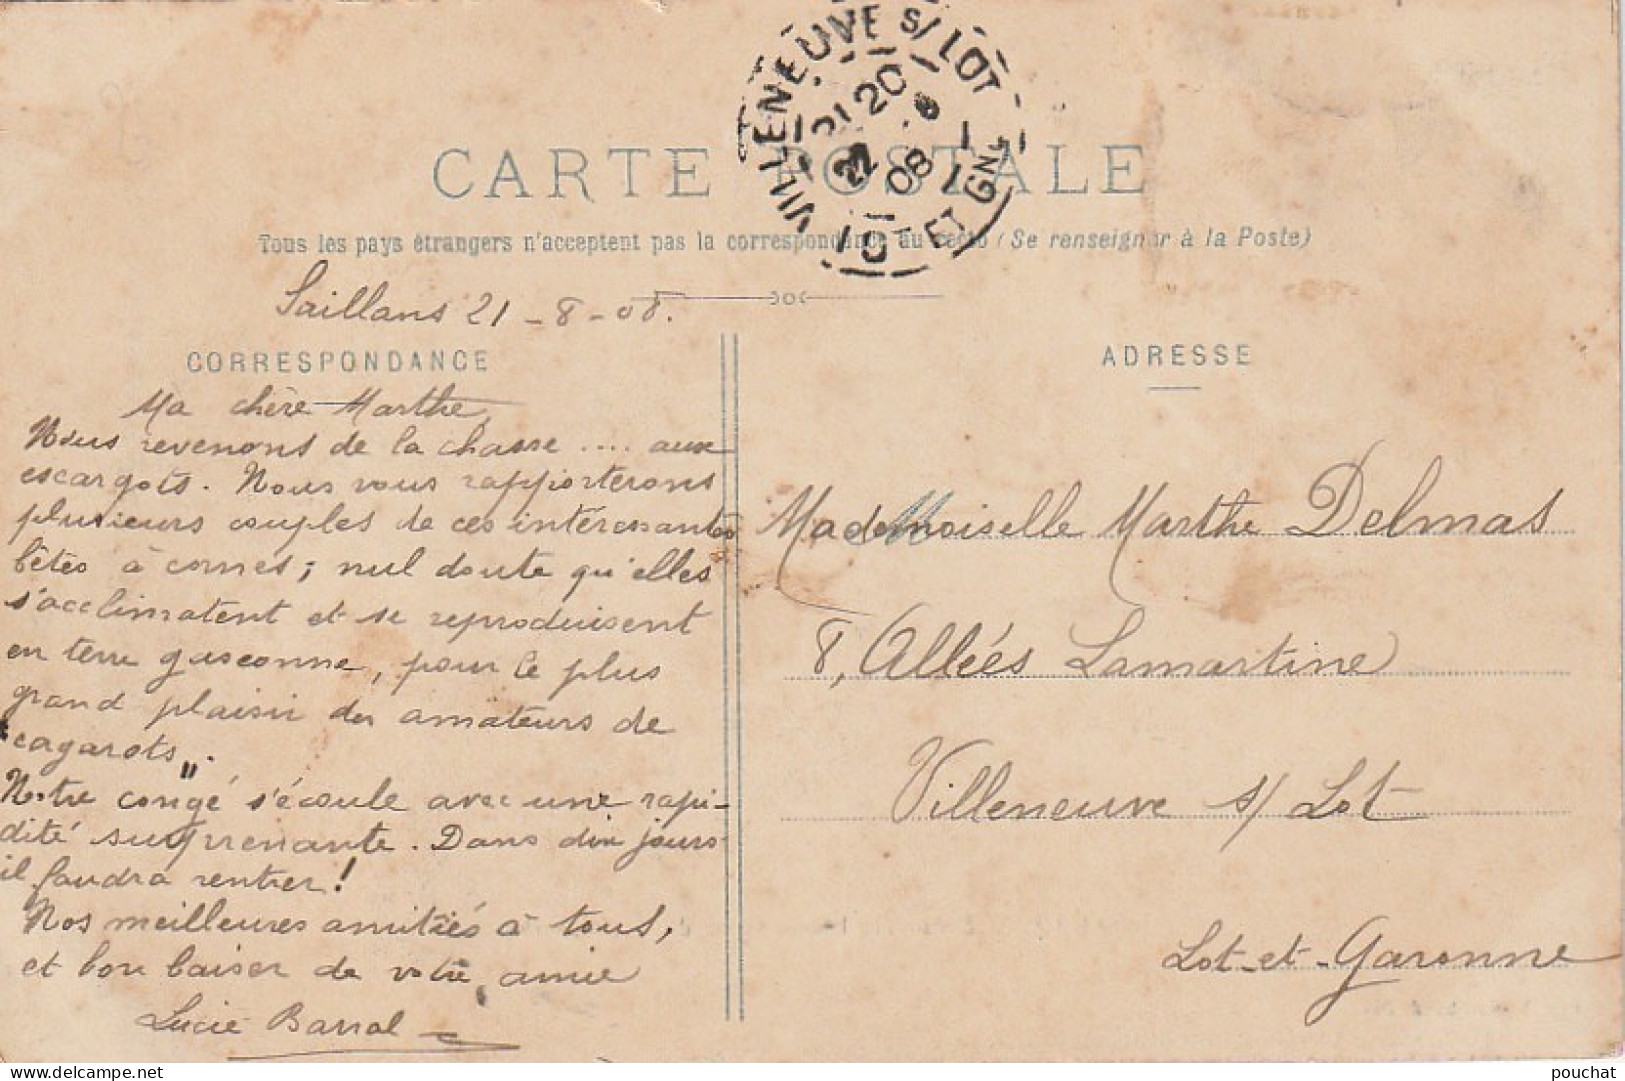 VILLENEUVE S/ LOT
21 20
22 8
08
LOT ET GNE
CARTE POSTALE
Tous les pays étrangers n'acceptent pas la correspondance au recto (Se renseigner à la Poste)
Saillans 21-8-08.
CORRESPONDANCE
Ma chère Marthe,
Nous revenons de la chasse .... aux
escargots. Nous vous rapporterons
plusieurs couples de ces intéressantes
bêtes à cornes; nul doute qu'elles
s'acclimatent et se reproduisent
en terre gasconne, pour le plus
grand plaisir des amateurs de
"cagarots".
Notre congé s'écoule avec une rapi-
dité surprenante. Dans dix jours
il faudra rentrer!
Nos meilleures amitiés à tous,
et bon baiser de votre amie
Lucie Barral
ADRESSE
Mademoiselle Marthe Delmas
8, Allées Lamartine
Villeneuve s/ Lot
Lot-et-Garonne
pouchat